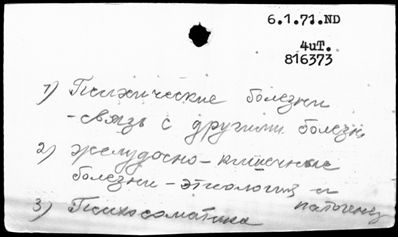 6.1.71.ND
4uT.
816373
1) Психические болезни
- связь с другими болезн
2) желудочно-кишечные
болезни - этиология и
патогенез
3) Психосоматика